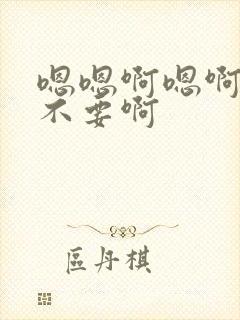 嗯嗯啊嗯啊
不要啊
區丹棋